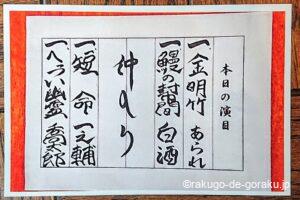 本日の演目
一、金明竹 あられ
一、鰻の幇間 白酒
仲入り
一、短命 一之輔
一、へっつい幽霊 喬太郎
©rakugo-de-goraku.jp